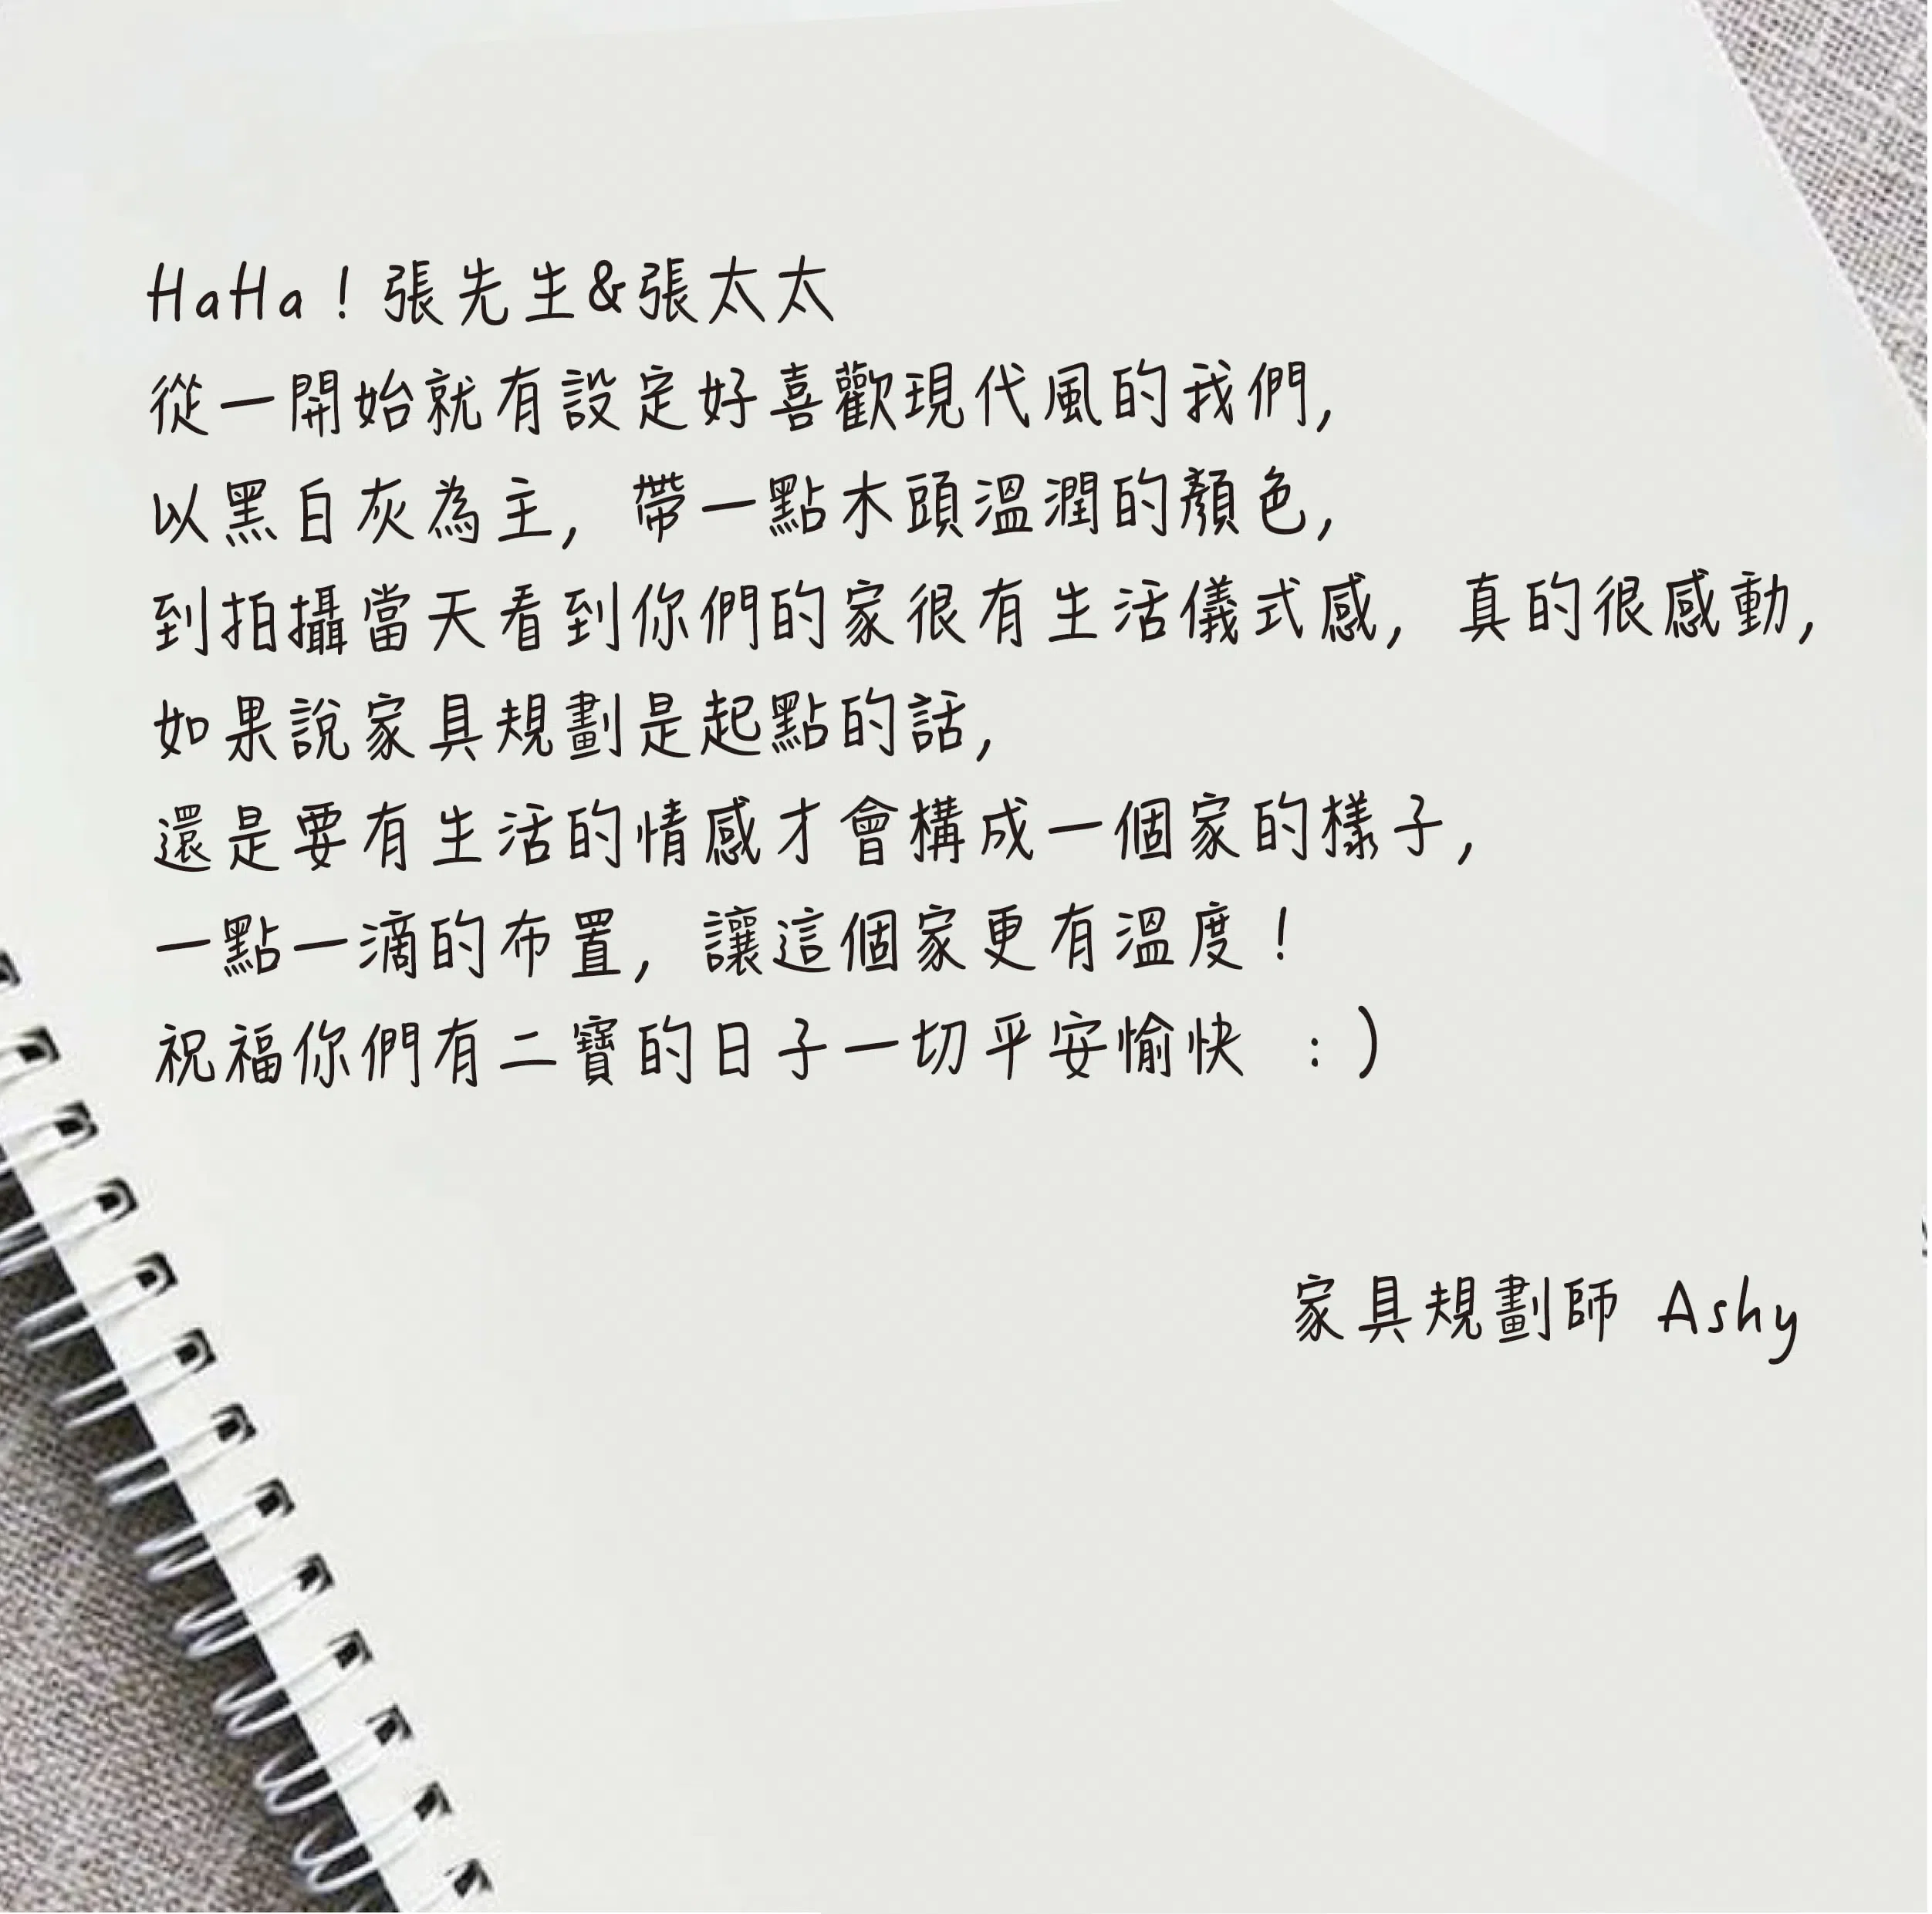 HaHa！張先生&張太太
從一開始就有設定好喜歡現代風的我們,
以黑白灰為主, 帶一點木頭溫潤的顏色,
到拍攝當天看到你們的家很有生活儀式感, 真的很感動,
如果說家具規劃是起點的話,
還是要有生活的情感才會構成一個家的樣子,
一點一滴的布置, 讓這個家更有溫度！
祝福你們有二寶的日子一切平安愉快 ：)
家具規劃師 Ashy